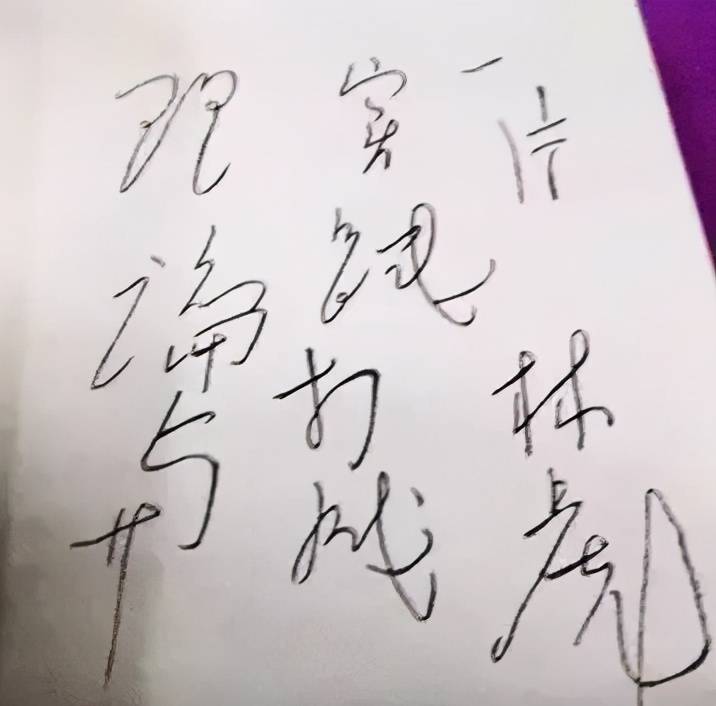 理論与
实践打成
一片
林彪